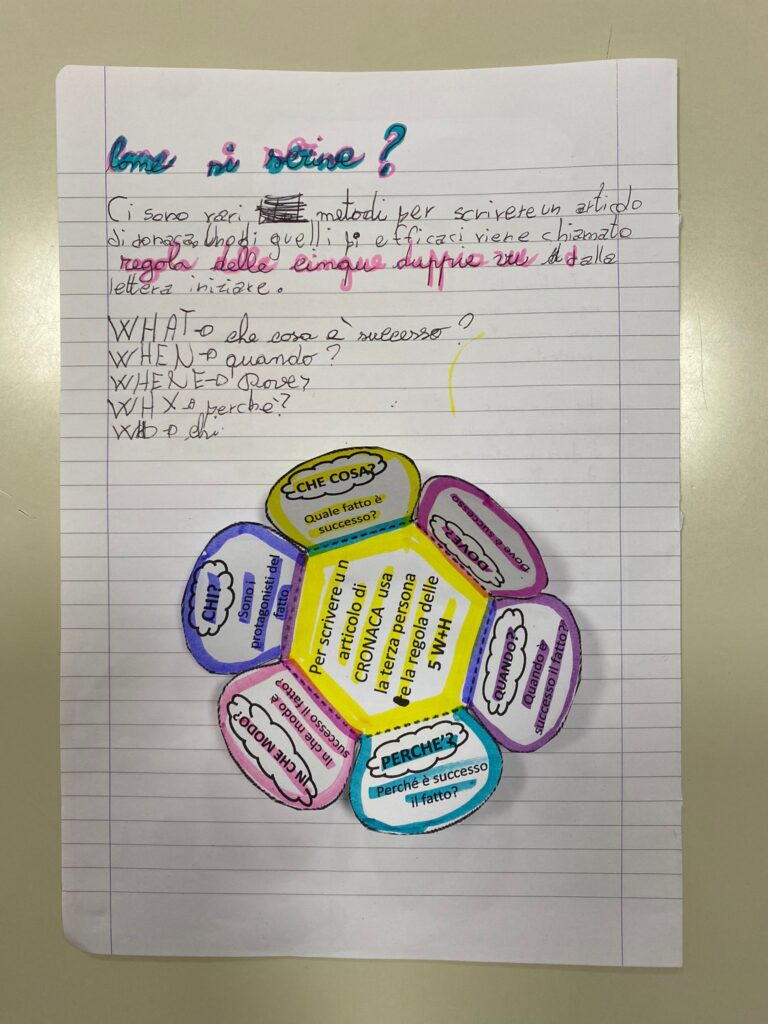 Come si scrive?
Ci sono vari metodi per scrivere un articolo
di cronaca. Uno di quelli pi efficaci viene chiamato
regola delle cinque duppie vu dalla
lettera iniziare.
WHAT→ che cosa è successo?
WHEN→ quando?
WHERE→ Dove?
WHY→ perchè?
WHO→ chi
CHE COSA?
Quale fatto è
successo?
DOVE?
Dove è successo
QUANDO?
Quando è
successo il fatto?
PERCHE'?
Perché è successo
il fatto?
IN CHE MODO?
In che modo è
successo il fatto?
CHI?
Sono i
protagonisti del
fatto
Per scrivere un
articolo di
CRONACA usa
la terza persona
e la regola delle
5 W+H